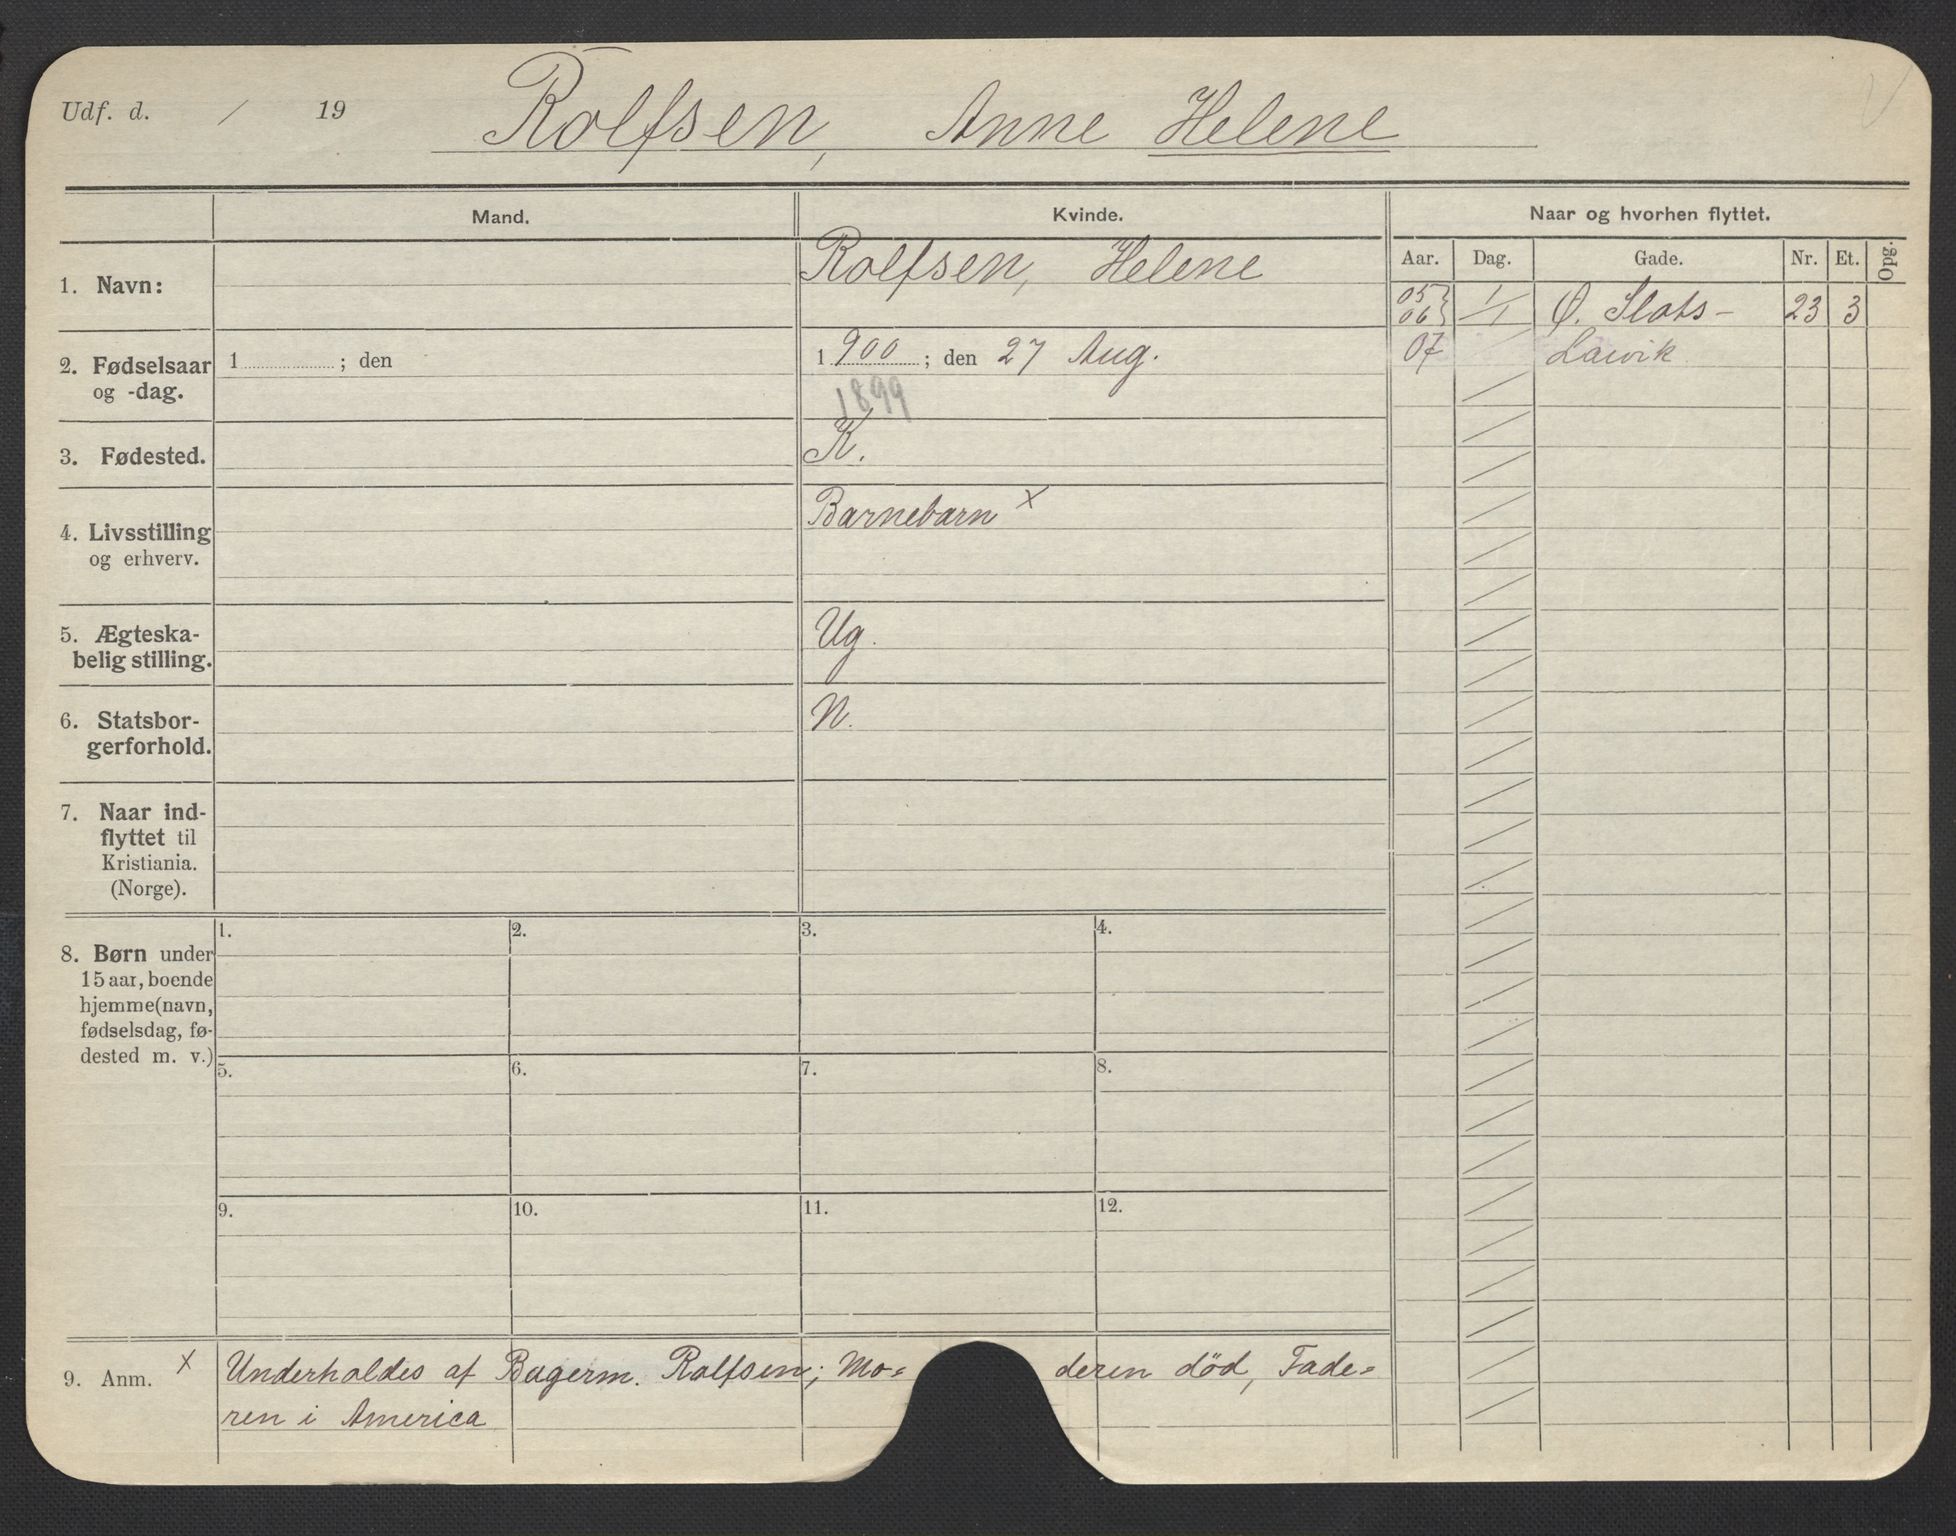 Udf. d. / 19
Rolfsen, Anne Helene
Mand.
Kvinde.
Naar og hvorhen flyttet.
Aar. Dag. Gade. Nr. Et. Opg.
1. Navn:
Rolfsen, Helene
05 } 1/1 Ø. Slots- 23 3
06 }
07 Laivik
2. Fødselsaar
og -dag.
1 ; den
1 900 ; den 27 Aug.
1899
3. Fødested.
K.
4. Livsstilling
og erhverv.
Barnebarn x
5. Ægteska-
belig stilling.
Ug.
6. Statsbor-
gerforhold.
N.
7. Naar ind-
flyttet til
Kristiania.
(Norge).
8. Børn under
15 aar, boende
hjemme (navn,
fødselsdag, fø-
dested m. v.)
1. 2. 3. 4.
5. 6. 7. 8.
9. 10. 11. 12.
9. Anm. x
Underholdes af Bagerm. Rolfsen; Mo= deren död, Fade=
ren i America